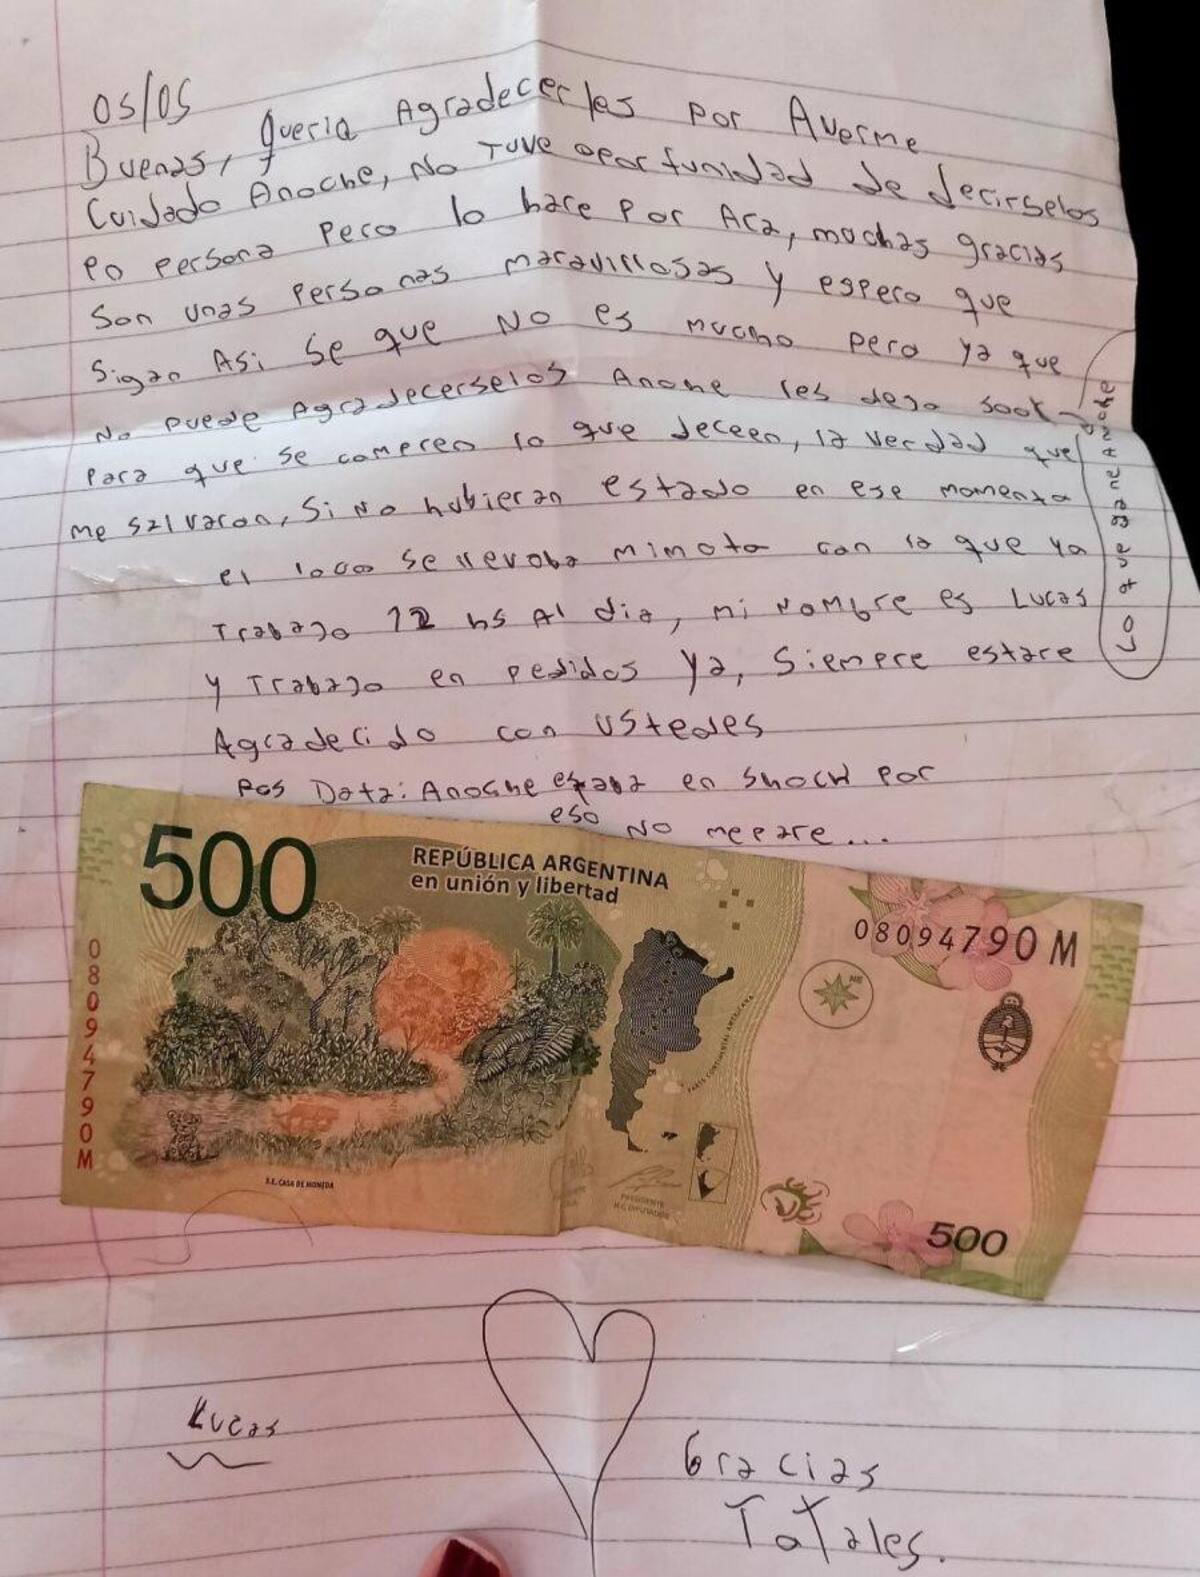 05/05
Buenas, queria Agradecerles por Averme
Cuidado Anoche, No Tuve oportunidad de decirselos
en persona pero lo hace por Aca, muchas gracias
son unas personas maravillosas y espero que
sigan Asi se que No es mucho pero ya que
No puede Agradecerselos Anoche les dejo 500k
Lo que gane Anoche
para que se compren lo que deceen, la verdad que
me salvaron, si no hubieran estado en ese momento
el loco se llevoba mi moto con la que yo
Trabajo 12 hs Al dia, mi Nombre es Lucas
y Trabajo en pedidos Ya, Siempre estare
Agradecido con ustedes
Pos Data: Anoche estaba en shock por
eso No me pare...
500
REPÚBLICA ARGENTINA
en unión y libertad
08094790M
08094790M
PARTE CONTINENTAL AMERICANA
S.E. CASA DE MONEDA
PRESIDENTE
H.C. DIPUTADOS
500
Lucas
Gracias
Totales.